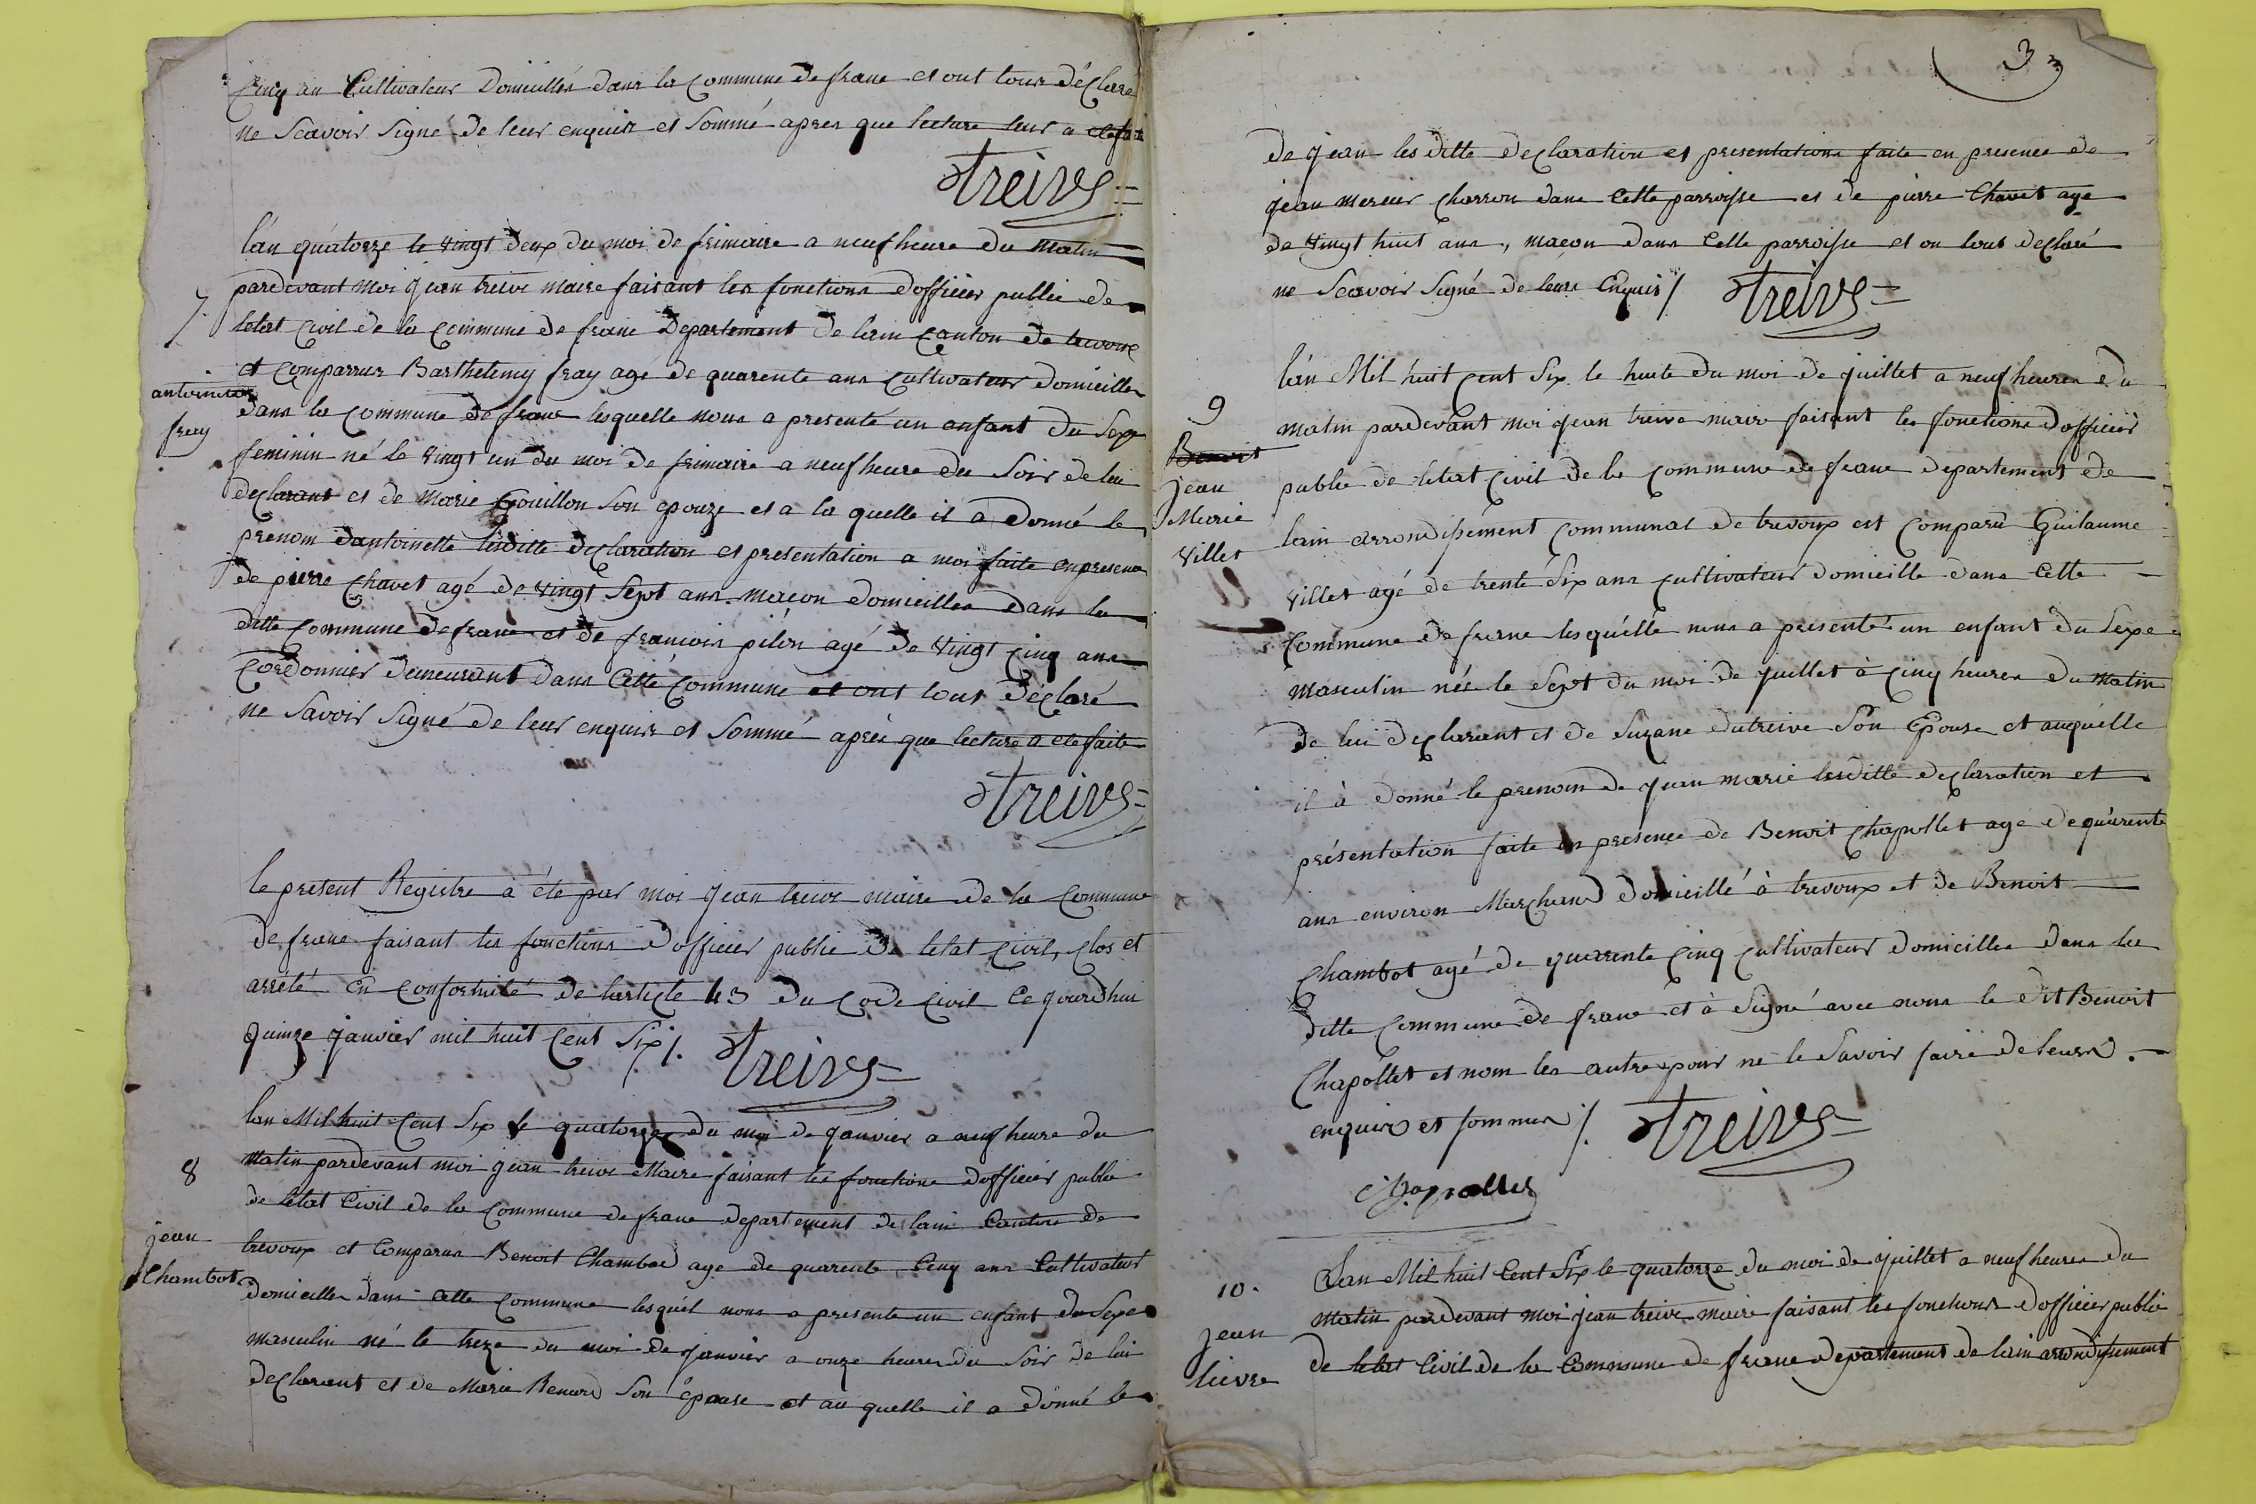 Cinq an Cultivateur Domicilles dans la Commune de frane et ont tous déClaré
ne Scavoir Signe de leur enquis et Sommé apres que lecture leur a ete fai
treive
lán quátorze le vingt deux du moi de frimaire a neuf heure du matin
7.
pardevant moi jean treive maire faisant les fonctions dofficier public de
letat Civil de la Commune de frane Departement de lain Canton de trevoux
et Comparrus Barthelemy fray agé de quarente ans Cultivateur domicille
antoinette
dans la Commune de frane lesquelle nous a presenté un anfant du Sexe
fray
feminin né le vingt un du moi de frimaire a neuf heure du Soir de lui
declarant et de Marie Gouillon Son epouze et a la quelle il a Donné le
prenom dantoinette lesditte declaration et presentation a moi faite en presence
de pierre Chavet agé de vingt Sept ans macon domicilles dans la
ditte Commune de frane et de francois pilon agé de vingt Cinq ans
Cordonnier demeurant dans Cette Commune et ont tout Déclaré
ne Savoir Signé de leur enquis et Sommé après que lecture a ete faite
treive
le present Registre à éte par moi jean treive maire de la Commune
de frane faisant les fonctions dofficier public de letat Civil, Clos et
arrété en Conformité de larticle 43 du Code Civil Ce jourdhui
quinze janvier mil huit Cent Six /. treive
lan Mil huit Cent Six le quatorze du moi de janvier a neuf heure du
8
matin pardevant moi jean treive Maire faisant les fonctions dofficier public
de letat Civil de la Commune de frane departement de lain Canton de
jean
trevoux et Comparus Benoit Chambod age de quarente Cinq ans Cultivateur
Chambot
domicilles dans Cette Commune lesquel nous a presente un enfant du Sexe
masculin né le treze du moi de janvier a onze heures du Soir de lui
declarant et de Marie Renard Son Epouse et au quelle il a donné le
3
de jean les ditte declaration et presentations faite en presence de
jean mercier Charron dans Cette parroisse et de pierre Chavet age
de vingt huit ans, macon dans Celle parroisse et on tous declaré
ne Scavoir Signé de leurs Enquis / treive
lán Mil huit Cent Six le huite du moi de juillet a neuf heures du
9
matin pardevant moi jean treive maire faisant les fonctions dofficier
Benoit
public de letat Civil de la Commune de frane departement de
jean
Marie
lain arrondissement Communal de trevoux est Comparû Guilaume
Villet
Villet agé de trente Six ans Cultivateur domicille dans Cette
Commune de frane lesquélle nous a presenté un enfant du Sexe
masculin née le Sept du moi de juillet à Cinq heures du matin
de lui declarant et de Suzane dutreive Son Epouse et auquélle
il à donné le prenom de jean marie lesditte declaration et
présentation faite en presence de Benoit Chapollet age de quarente
ans environ Marchand domicillé à trevoux et de Benoit
Chambot agé de quarente Cinq Cultivateur domicilles dans la
ditte Commune de frane et à Signé avec nous le dit Benoit
Chapollet et nom les autres pour ne le Savoir faire de leurs
enquis et sommes /. treive
Chapollet
Lan Mil huit Cent Six le quatorze du moi de juillet a neuf heures du
10.
matin pardevant moi jean treive maire faisant les fonctions dofficier public
jean
de letat Civil de la Commune de frane departement de lain arrondissement
lievre